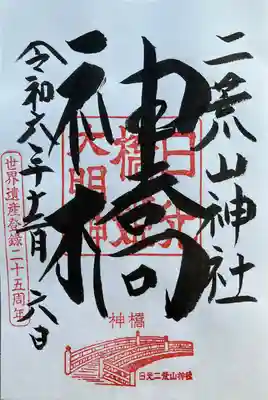 二荒山神社
神橋
令和六年十二月六日
世界遺産登録二十五周年
神橋
日光二荒山神社